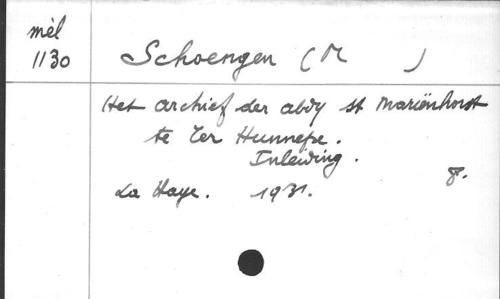 mèl
1130
Schoengen (M )
Het archief der abdy st Mariënhorst
te Ter Hunnepe.
Inleiding.
8.
La Haye. 1931.